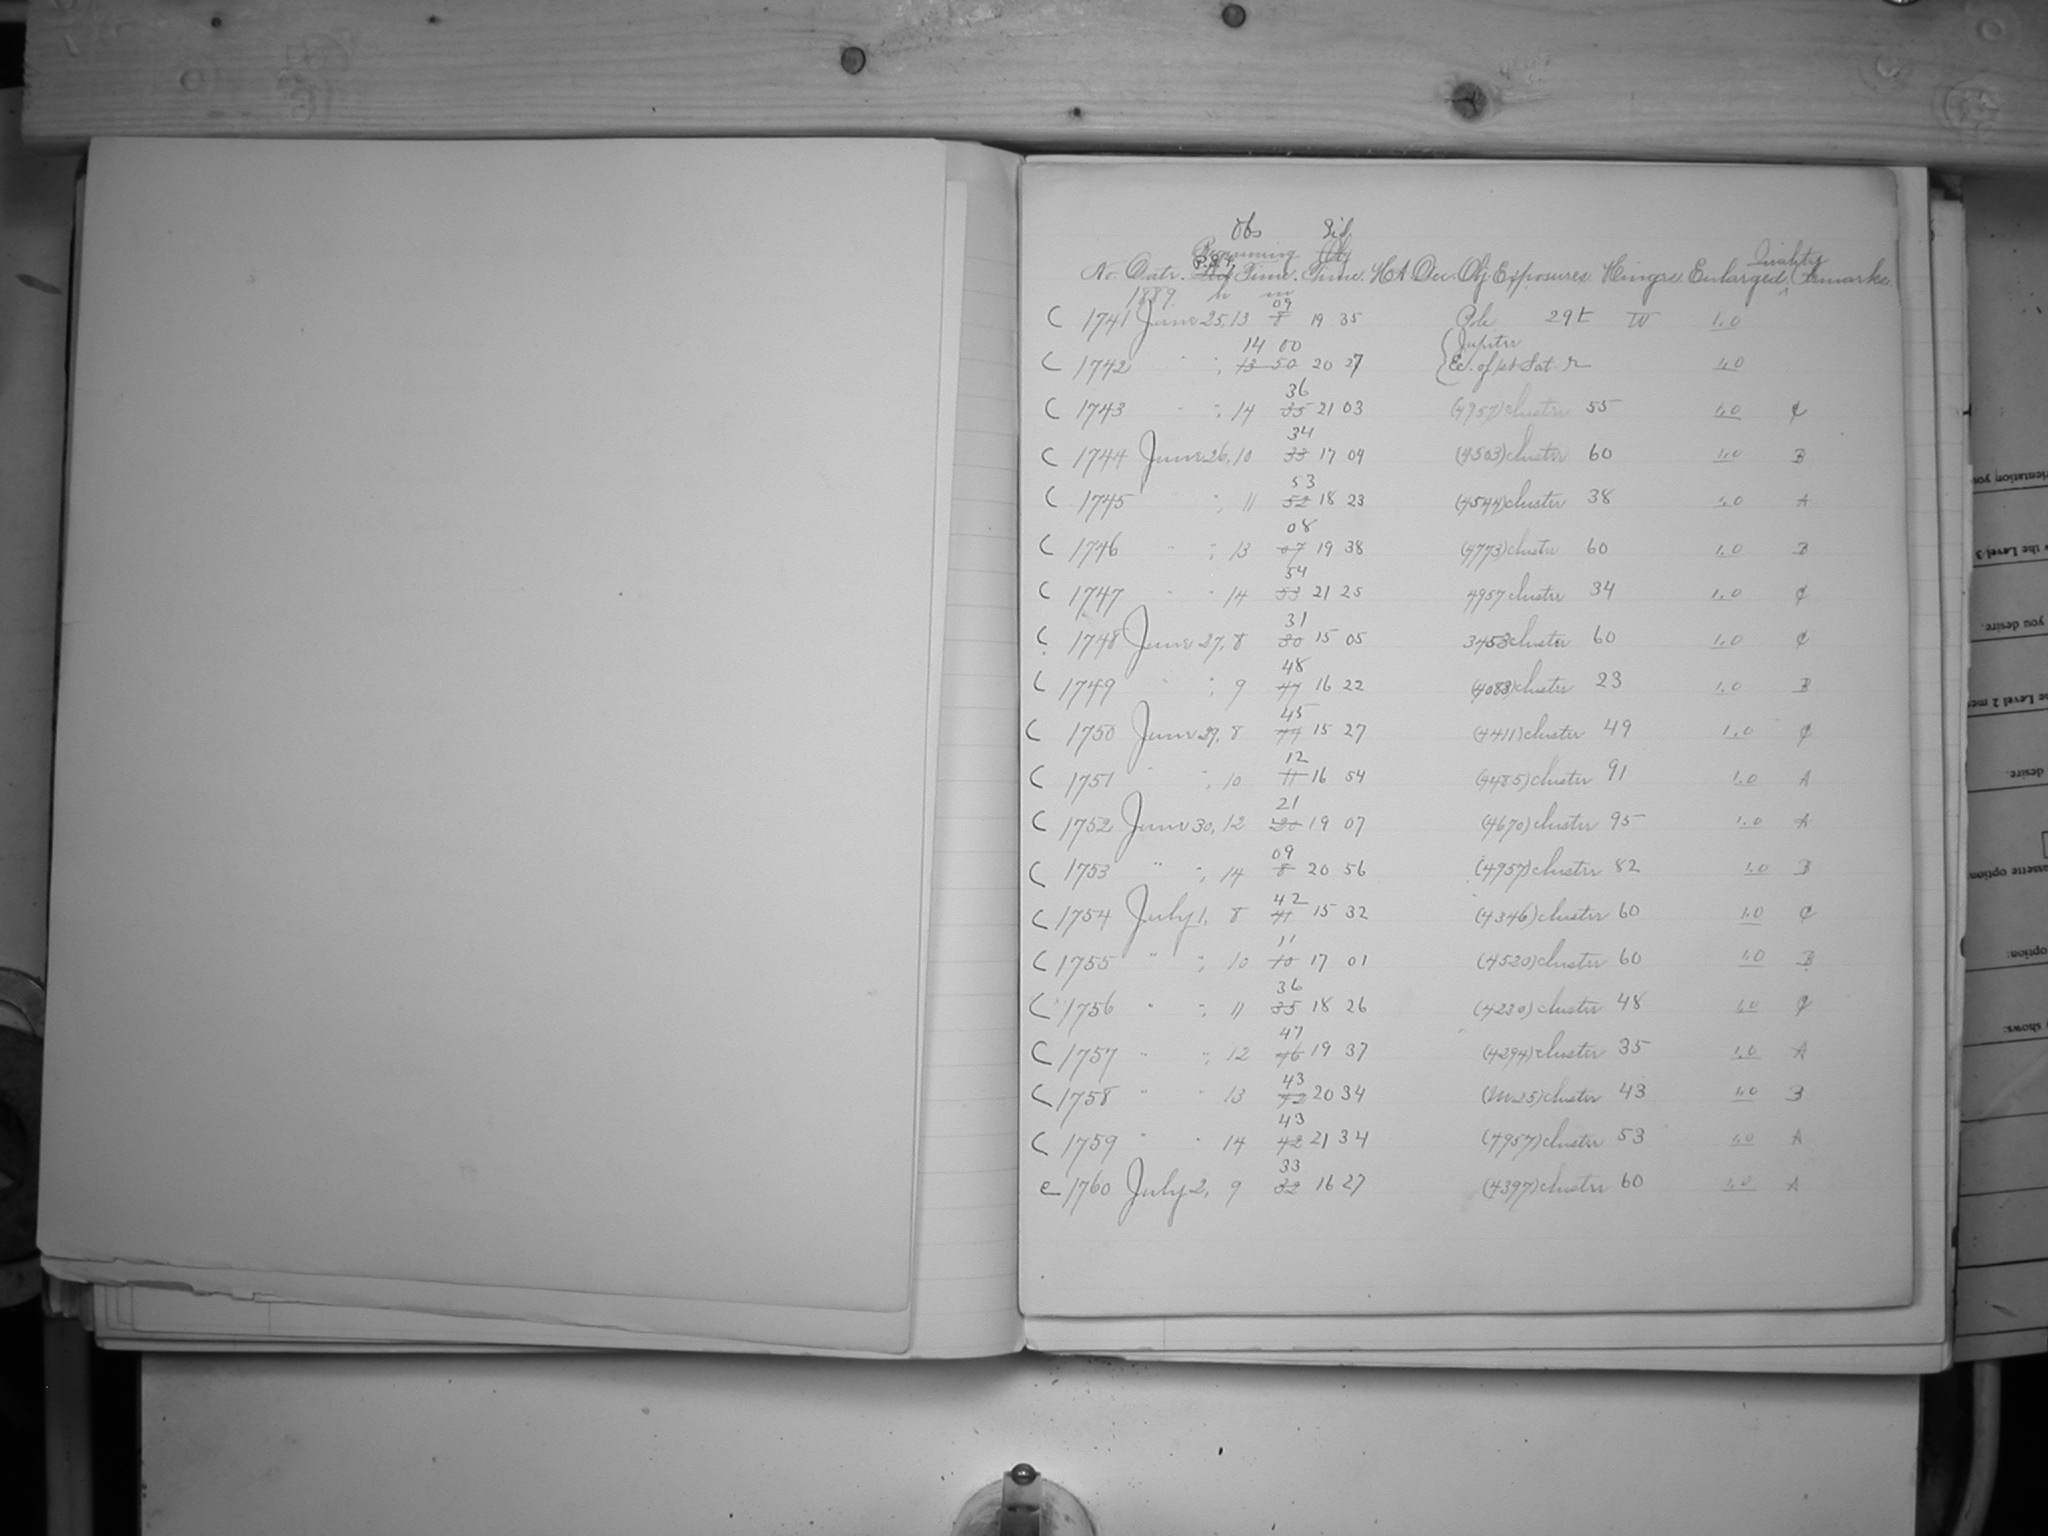 Obs Sid
Beginning Obj Quality
No. Date. P.S.T. Time. Time. HA Dec. Obj Exposures. Hinge. Enlarged. Remarks.
1889. h m
09
C 1741 June 25, 13 8 19 35 Pole 29t W 1.0
14 00 Jupiter
C 1742 " ; 13 50 20 27 Ec. of 1st Sat. r 1.0
36
C 1743 " ; 14 35 21 03 (4957) cluster 55 1.0 C
34
C 1744 June 26, 10 33 17 09 (4503) cluster 60 1.0 B
53
C 1745 ; 11 52 18 23 (4544) cluster 38 1.0 A
08
C 1746 " ; 13 07 19 38 (4773) cluster 60 1.0 B
54
C 1747 " " 14 53 21 25 4957 cluster 34 1.0 C
31
C 1748 June 27, 8 30 15 05 3453 cluster 60 1.0 C
48
C 1749 " ; 9 47 16 22 (4083) cluster 23 1.0 B
45
C 1750 June 29, 8 44 15 27 (4411) cluster 49 1.0 C
12
C 1751 " ; 10 11 16 54 (4485) cluster 91 1.0 A
21
C 1752 June 30, 12 20 19 07 (4670) cluster 95 1.0 A
09
C 1753 " ; 14 8 20 56 (4957) cluster 82 1.0 B
42
C 1754 July 1, 8 41 15 32 (4346) cluster 60 1.0 C
11
C 1755 " ; 10 10 17 01 (4520) cluster 60 1.0 B
36
C 1756 " ; 11 35 18 26 (4230) cluster 48 1.0 C
47
C 1757 " ; 12 46 19 37 (4294) cluster 35 1.0 A
43
C 1758 " " 13 42 20 34 (M25) cluster 43 1.0 B
43
C 1759 " " 14 42 21 34 (4957) cluster 53 1.0 A
33
C 1760 July 2, 9 32 16 27 (4397) cluster 60 1.0 A
you desire.
desire.
assette option
option:
shows: